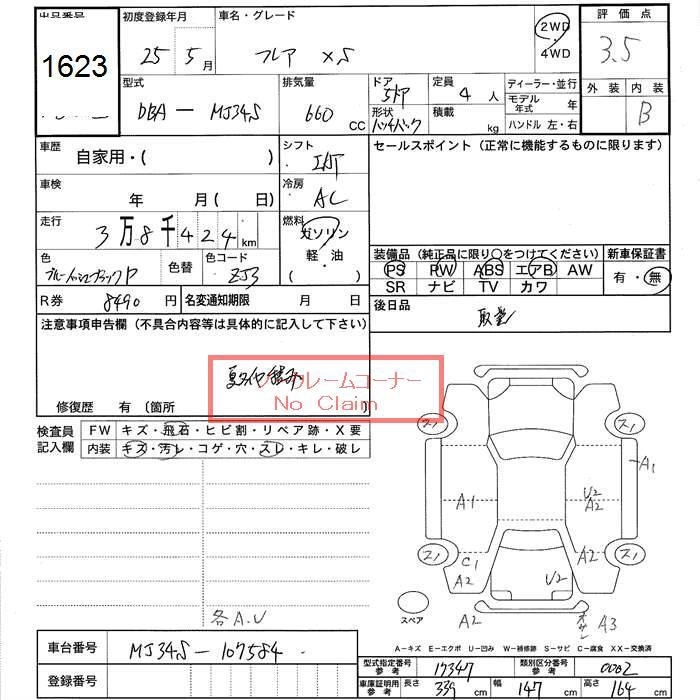 出品番号 初度登録年月 車名・グレード 評価点
1623 25 5月 フレア XS 2WD・4WD 3.5
型式 排気量 ドア 定員 ディーラー・並行 外装 内装
DBA - MJ34S 660 CC 5ドア 4人 モデル年式 年 B
形状 ハッチバック 積載 kg ハンドル 左・右
車歴 自家用・( ) シフト セールスポイント (正常に機能するものに限ります)
車検 年 月 ( 日) 冷房 AC
走行 3万8千424km 燃料 ガソリン・軽油 ( )
色 ブルーイッシュブラックP 色替 色コード ZJ3
装備品 (純正品に限り○をつけてください) 新車保証書
PS PW ABS エアB AW 有・無
SR ナビ TV カワ
R券 8490円 名変通知期限 月 日 後日品 取書
注意事項申告欄 (不具合内容等は具体的に記入して下さい)
ノークレームコーナー
No Claim
修復歴 有 〔箇所 〕
検査員記入欄 FW キズ・飛石・ヒビ割・リペア跡・X要
内装 キズ・汚レ・コゲ・穴・スレ・キレ・破レ
スノ スノ
A1
A1 U2 A2
スノ C1 A2 A2 スノ
U2
スペア A2 A3
各A.U
A-キズ E-エクボ U-凹み W-補修跡 S-サビ C-腐食 XX-交換済
車台番号 MJ34S-107584
登録番号
型式指定番号 参考 17347 類別区分番号 参考 0002
車庫証明用 参考 長さ 339cm 幅 147cm 高さ 164cm